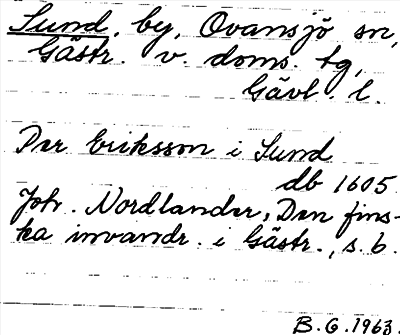 Sund, by, Ovansjö sn,
Gästr. v. doms. tg,
Gävl. l.
Per Eriksson i Sund
db 1605
Joh. Nordlander, Den fins-
ka invandr. i Gästr., s. 6.
B.G. 1963.